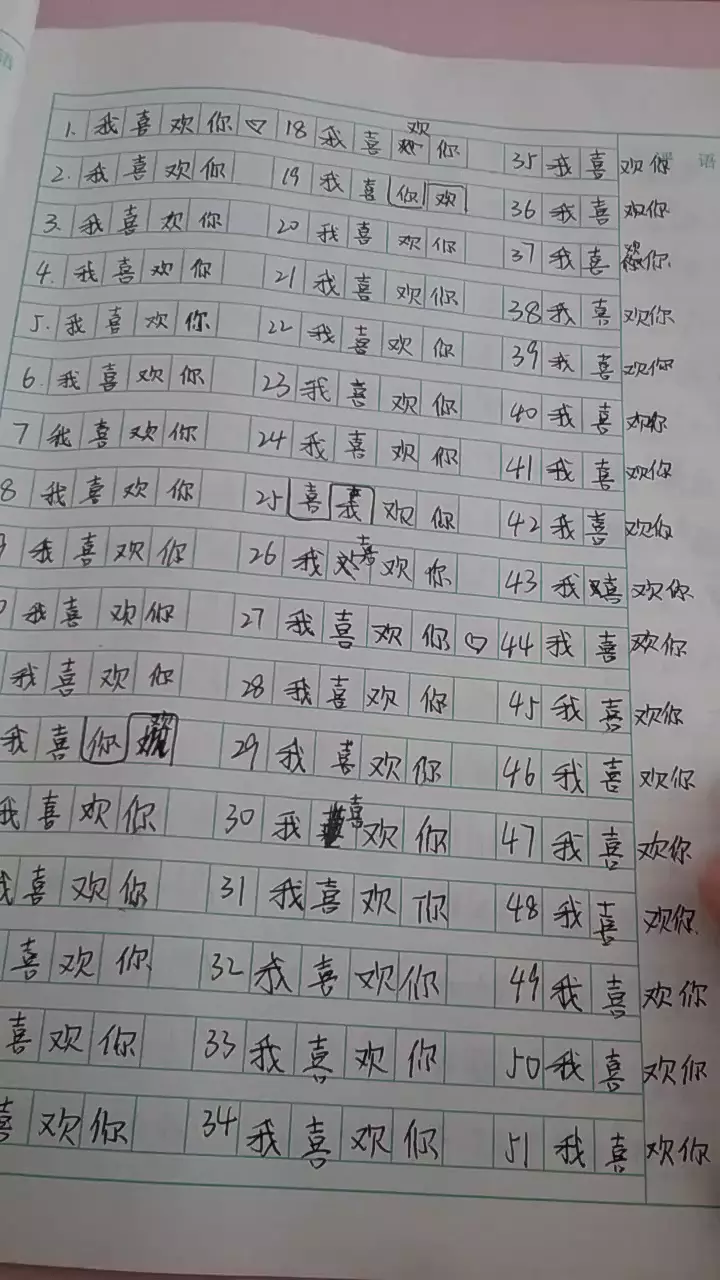 1. 我喜欢你♡
2. 我喜欢你
3. 我喜欢你
4. 我喜欢你
5. 我喜欢你
6. 我喜欢你
7 我喜欢你
8 我喜欢你
9 我喜欢你
0 我喜欢你
我喜欢你
我喜你
我喜欢你
我喜欢你
喜欢你
喜欢你
喜欢你
18 我喜欢你
19 我喜你欢
20 我喜欢你
21 我喜欢你
22 我喜欢你
23 我喜欢你
24 我喜欢你
25 喜我欢你
26 我喜欢你
27 我喜欢你♡
28 我喜欢你
29 我喜欢你
30 我喜欢你
31 我喜欢你
32 我喜欢你
33 我喜欢你
34 我喜欢你
35 我喜欢你
36 我喜欢你
37 我喜你
38 我喜欢你
39 我喜欢你
40 我喜欢你
41 我喜欢你
42 我喜欢你
43 我喜欢你
44 我喜欢你
45 我喜欢你
46 我喜欢你
47 我喜欢你
48 我喜欢你
49 我喜欢你
50 我喜欢你
51 我喜欢你
语